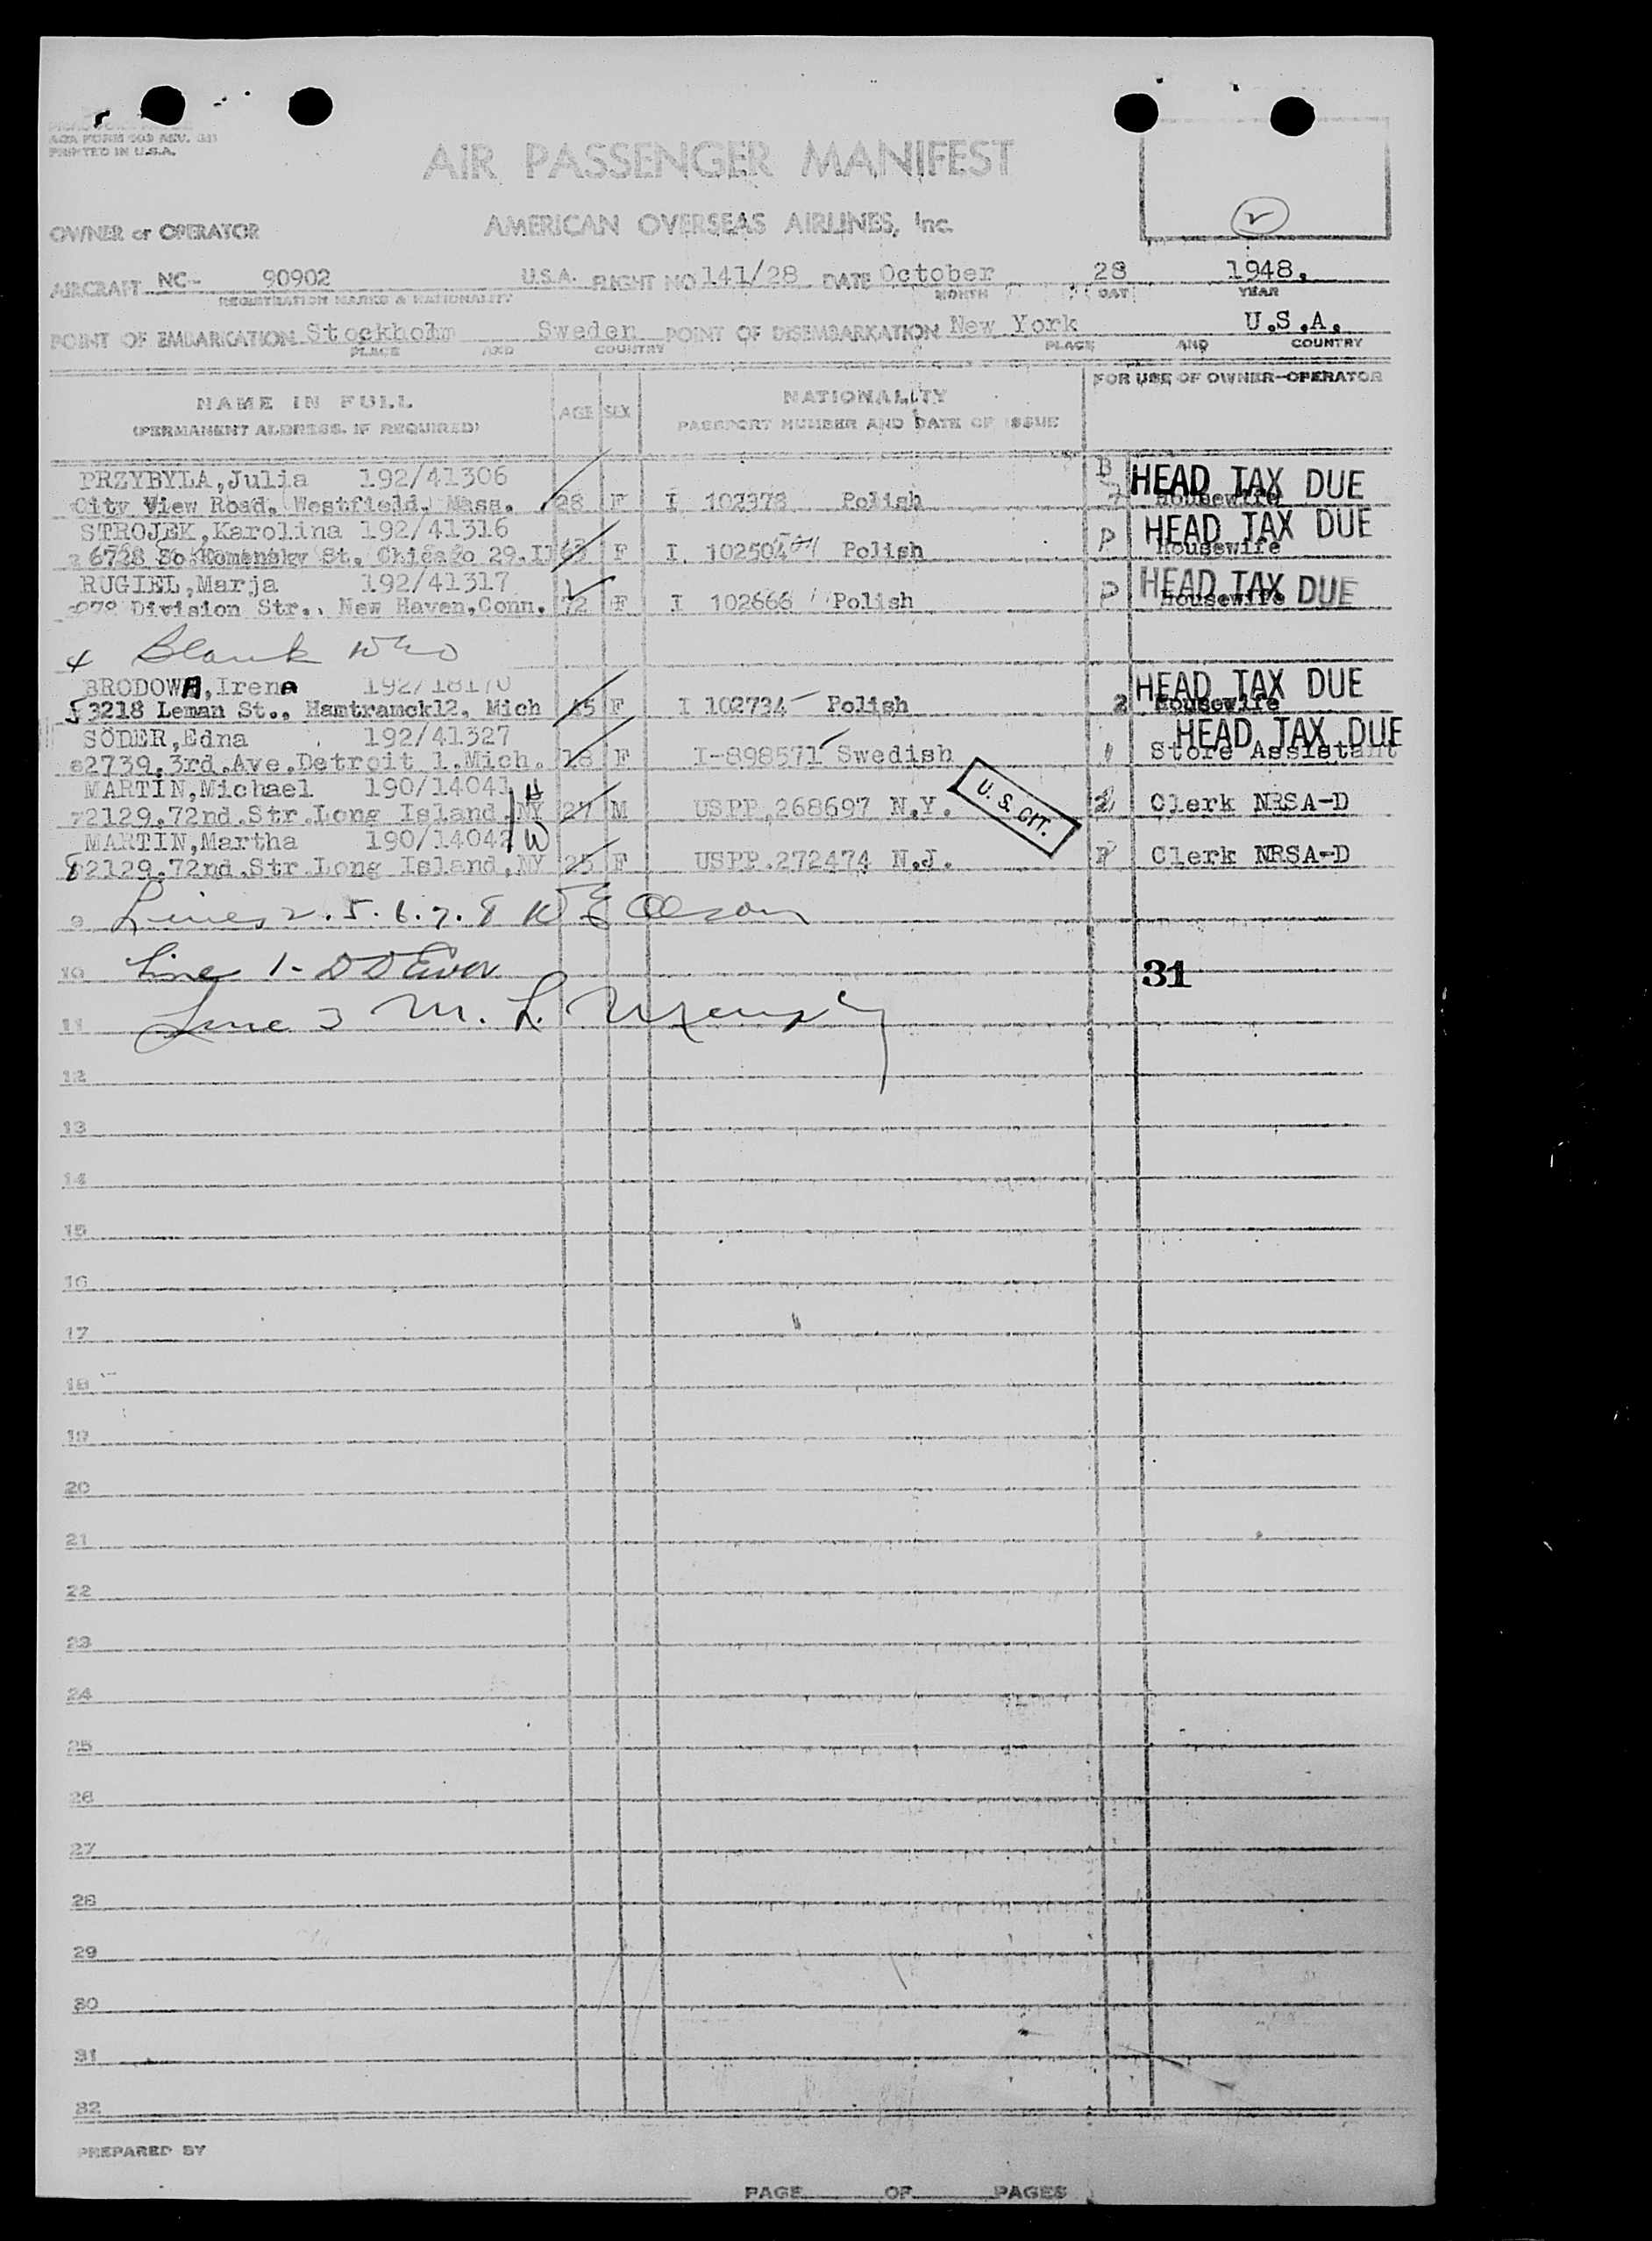 PRINTED IN U.S.A.
AIR PASSENGER MANIFEST
OWNER or OPERATOR AMERICAN OVERSEAS AIRLINES, Inc.
AIRCRAFT NC- 90902 U.S.A. FLIGHT NO 141/28 DATE October 28 1948.
REGISTRATION MARKS & NATIONALITY MONTH DAY YEAR
POINT OF EMBARKATION Stockholm Sweden POINT OF DISEMBARKATION New York U.S.A.
PLACE AND COUNTRY PLACE AND COUNTRY
NAME IN FULL AGE SEX NATIONALITY FOR USE OF OWNER-OPERATOR
(PERMANENT ADDRESS, IF REQUIRED) PASSPORT NUMBER AND DATE OF ISSUE
PRZYBYLA, Julia 192/41306 B HEAD TAX DUE
City View Road, Westfield, Mass. 28 F I 102378 Polish Housewife
STROJEK, Karolina 192/41316 HEAD TAX DUE
6728 So Komensky St. Chicago 29. Il 63 F I 102504 Polish P Housewife
RUGIEL, Marja 192/41317 HEAD TAX DUE
Division Str., New Haven, Conn. 72 F I 102666 Polish P Housewife
4 Blank WEO
BRODOWA, Irena 192/18170 HEAD TAX DUE
5 3218 Leman St., Hamtramck12, Mich 45 F I 102734 Polish 2 Housewife
SÖDER, Edna 192/41327 HEAD TAX DUE
6 2739.3rd.Ave.Detroit 1.Mich. 18 F I-898571 Swedish 1 Store Assistant
MARTIN, Michael 190/14041 H
7 2129.72nd.Str.Long Island.NY 27 M USPP.268697 N.Y. U.S. CIT. 2 Clerk NRSA-D
MARTIN, Martha 190/14042 W
8 2129.72nd.Str.Long Island.NY 25 F USPP.272474 N.J. Clerk NRSA-D
9 Lines 2.5.6.7.8 W E Olson
10 Line 1- 31
11 Line 3 M. L.
12
13
14
15
16
17
18
19
20
21
22
23
24
25
26
27
28
29
30
31
32
PREPARED BY
PAGE OF PAGES